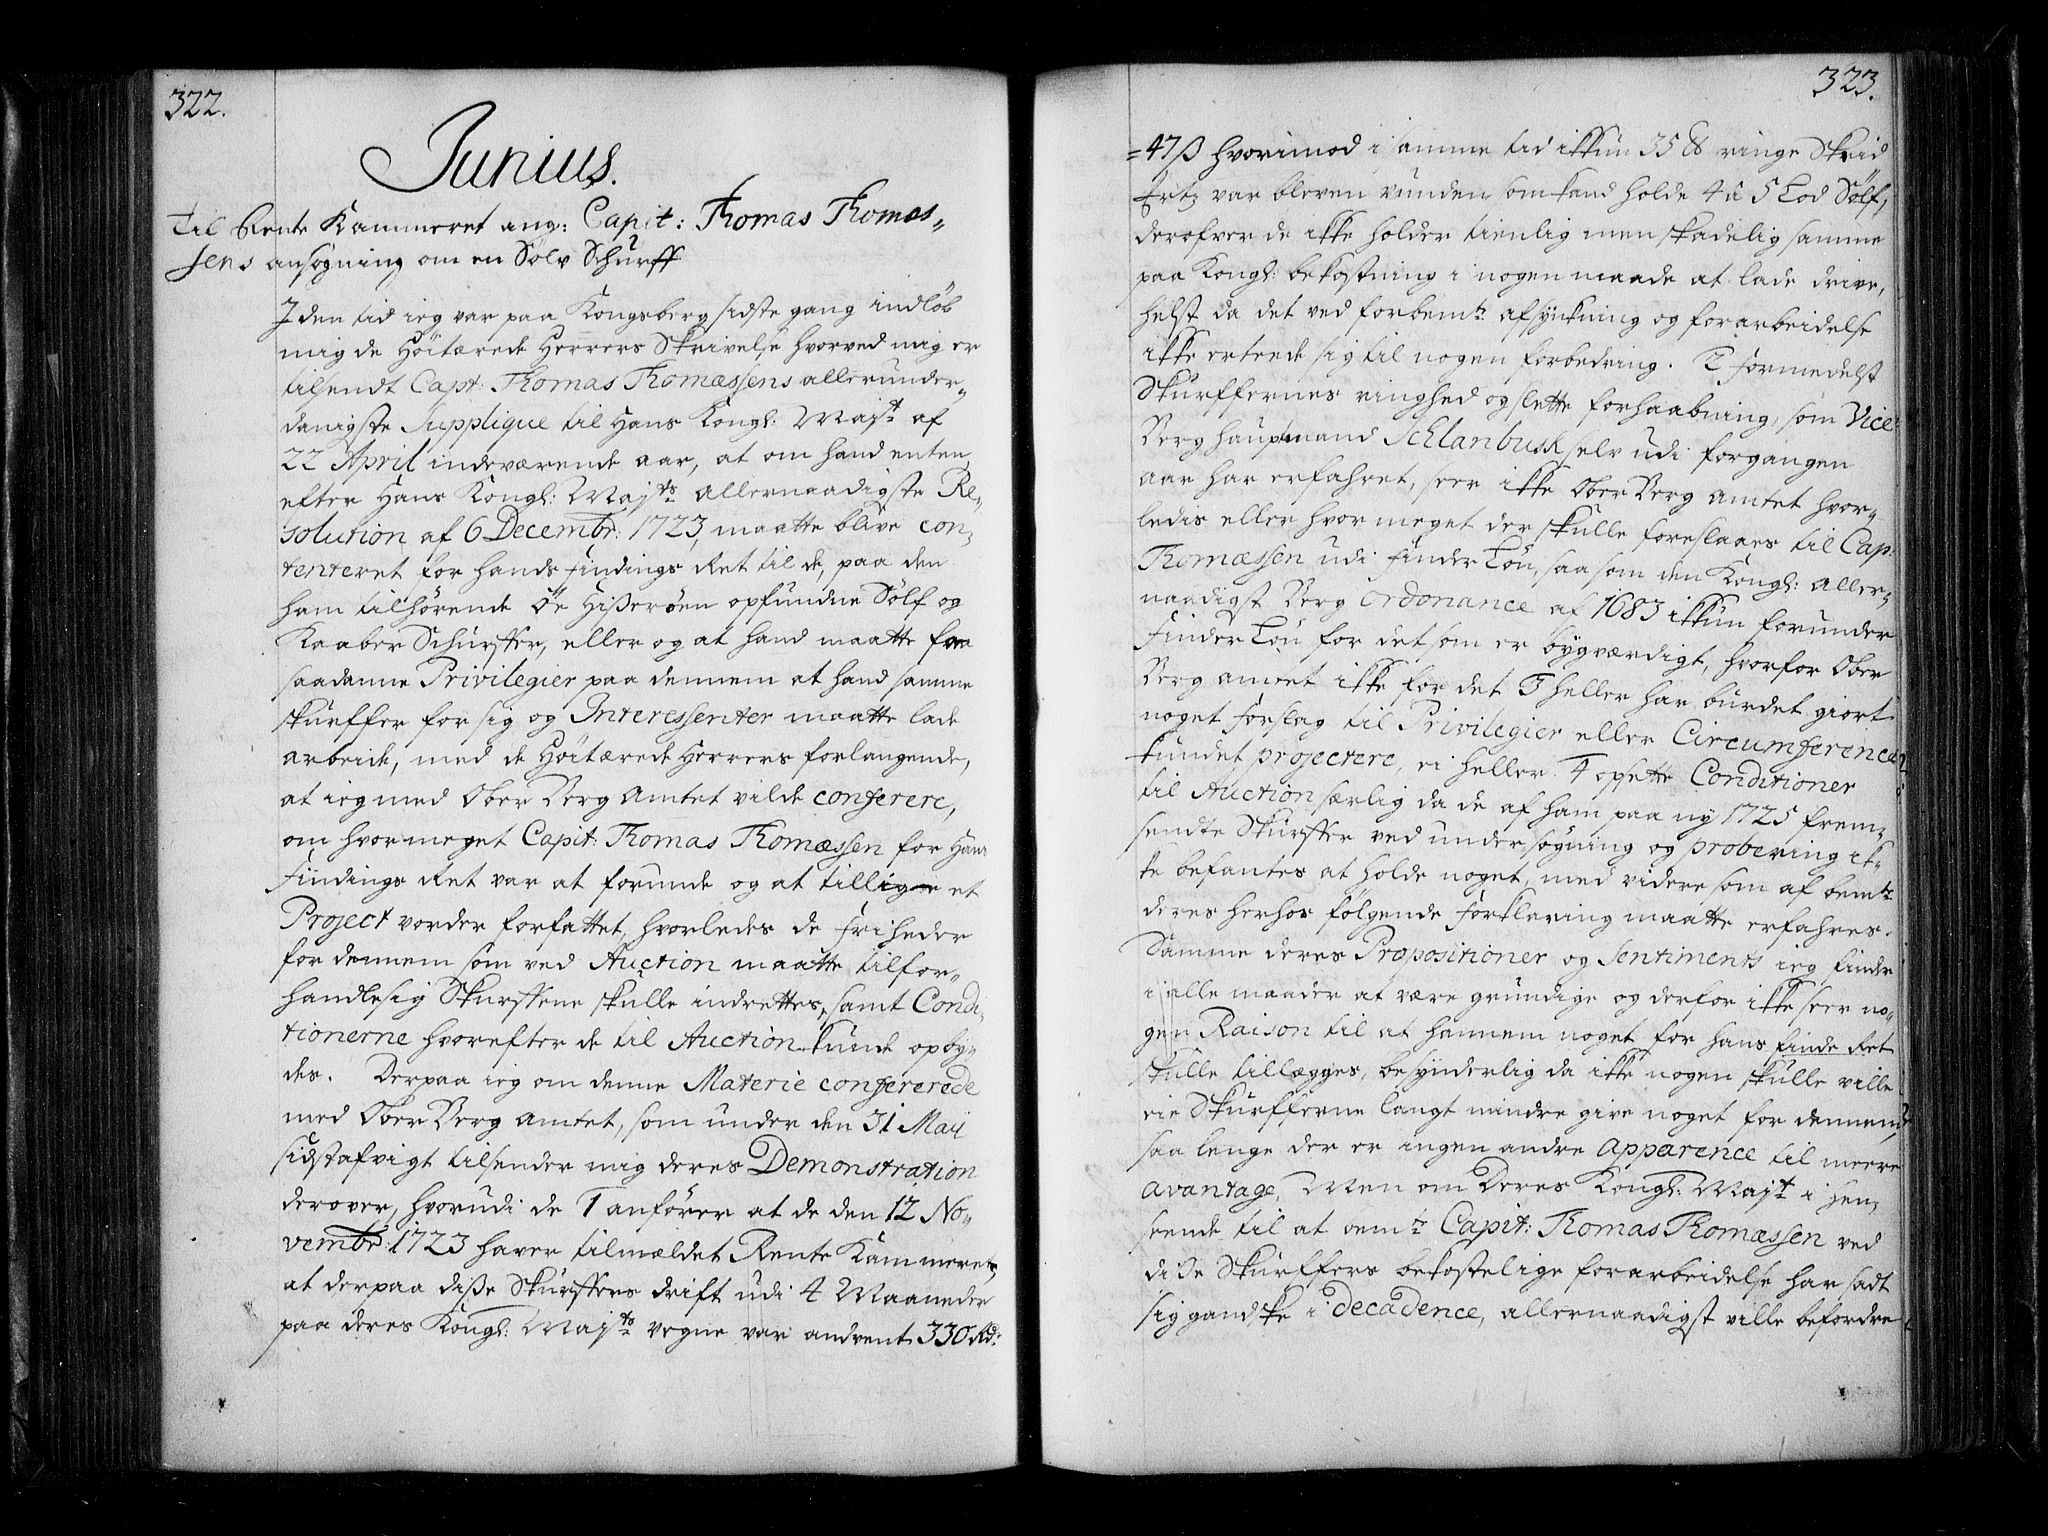 322.
Junius.
Til Rente Kammeret ang: Capit: Thomas Thomæs-
sens ansøgning om en Sølv Schürff
I den tid ieg var paa Kongsberg sidste gang indløb
mig de Høitærede Herrers Skrivelse hvorved mig er
tilsendt Capt: Thomas Thomæssens allerunder-
danigste Supplique til Hans Kongl: Majt af
22 April indeværende aar, at om hand enten
efter Hans Kongl: Majts allernaadigste Re-
solution af 6 Decembr: 1723, maatte blive con-
tenteret for hands Findings Ret til de, paa den
ham tilhørende Øe Hisserøen opfundne Sølf og
Kaaber Schürffer, eller og at hand maatte faa
saadanne Privilegier paa dennem at hand samme
skürffer for sig og Interessenter maatte lade
arbeide, med de Høitærede Herrers forlangende,
at ieg med Ober Berg Amtet vilde conferere,
om hvor meget Capit: Thomas Thomæssen for Hans
Findings Ret var at forunde og at tillige et
Project vorder forfattet, hvorledes de friheder
for dennem som ved Auction maatte tilfor-
handle sig Skürffene skulle indrettes, samt Condi-
tionerne hvorefter de til Auction kunde opby-
des. Derpaa ieg om denne Materie confererede
med Ober Berg Amtet, som under den 31 Maii
sidstafvigt tilsender mig deres Demonstration
derover, hvorudi de 1 anfører at de den 12 No-
vembr: 1723 haver tilmældet Rente Kammeret,
at derpaa disse Skürffers drift udi 4 Maaneder
paa deres Kongl: Majts vegne var andvent 330 Rd:
323.
=47 ß hvorimod i samme tid ikkun 35 ℔ ringe Skeid
Ertz var bleven vunden som kand holde 4 a 5 Lod Sølf,
derofver de ikke holder tienlig men skadelig samme
paa Kongl: bekostning i nogen maade at lade drive,
helst da det ved forbemte afsynkning og forarbeidelse
ikke erteede sig til nogen forbedring. 2 formedelst
Skürffernes ringhed og slette forhaabning, som Vice-
Berg hauptmand Schlanbusch selv udi forgangen
aar har erfahret, seer ikke Ober Berg Amtet hvor-
ledis eller hvor meget der skulle foreslaaes til Cap:
Thomæssen udi Finder Løn, saasom den Kongl: aller-
naadigst Berg Ordonance af 1683 ikkun forunder
Finder Løn for det som er bygværdigt, hvorfor Ober
Berg amtet ikke for det 3 heller har burdet giort
noget forslag til Privilegier eller Circumference
kundet projectere, ei heller 4 opsette Conditioner
til Auction særlig da de af ham paa ny 1725 frem-
sendte Skürffer ved undersøgning og probering ik-
ke befantes at holde noget, med videre som af bemte
deres herhos følgende forklaring maatte erfahres.
Samme deres Propositioner og Sentiments ieg finder
i alle maader at være grundige og derfor ikke seer no-
gen Raison til at hannem noget for hans finde Ret
skulle tillægges, besynderlig da ikke nogen skulle ville
eie Skürfferne langt mindre give noget for dennem,
saa lenge der er ingen andre apparence til meere
avantage, Men om Deres Kongl: Majt i hen-
seende til at bemte Capit: Thomas Thomæssen ved
disse Skürffers bekostelige forarbeidelse har sadt
sig gandske i decadence, allernaadigst ville befordre